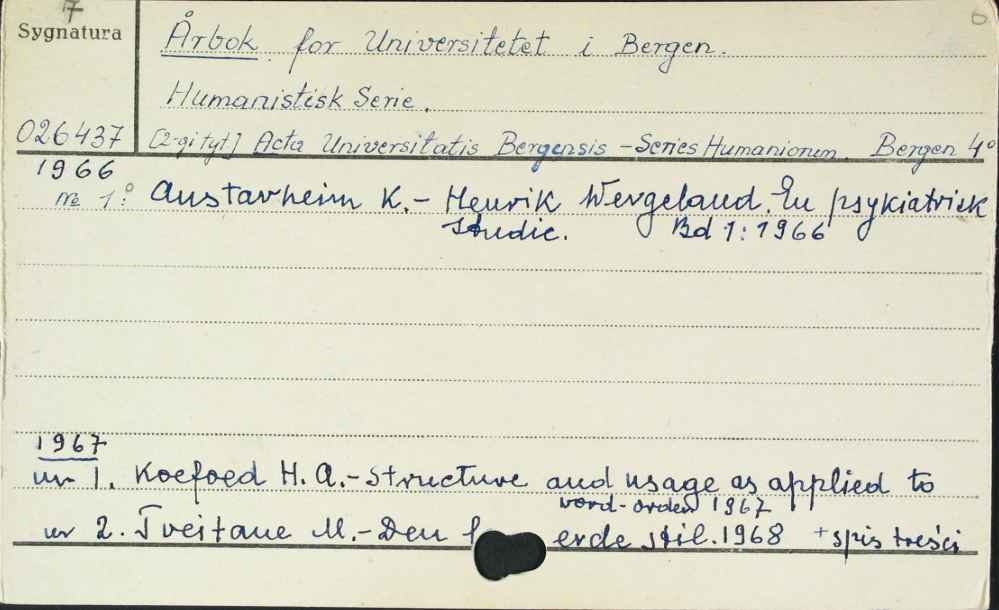 7
Sygnatura
Årbok for Universitetet i Bergen.
Humanistisk Serie.
026437
[2-gi tyt.] Acta Universitatis Bergensis - Series Humaniorum. Bergen 4°
1966
nr 1: Austarheim K. - Henrik Wergeland. En psykiatrick
Studie. Bd 1: 1966
1967
nr 1. Koefoed H. A. - Structure and usage as applied to
word-order 1967
nr 2. Tveitane M. - Den l erde stil. 1968 + spis treści